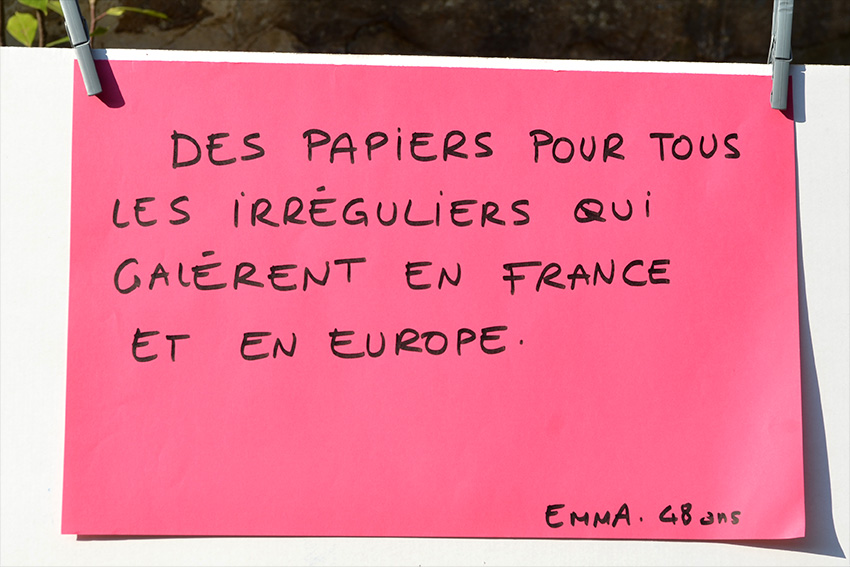 DES PAPIERS POUR TOUS
LES IRRÉGULIERS QUI
GALÉRENT EN FRANCE
ET EN EUROPE.
EMMA. 48 ans